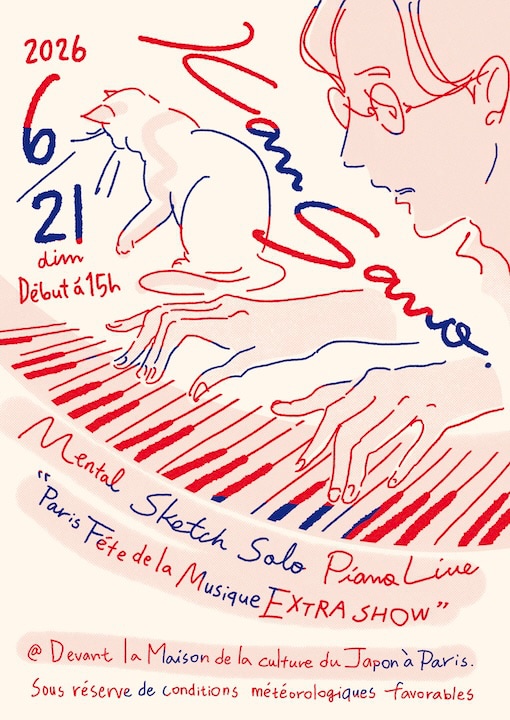 2026
6
21
dim
Début à 15h
Kan Sano.
Mental Sketch Solo Piano Live
"Paris Féte de la Musique EXTRA SHOW"
@ Devant la Maison de la culture du Japon à Paris.
Sous réserve de conditions météorologiques favorables